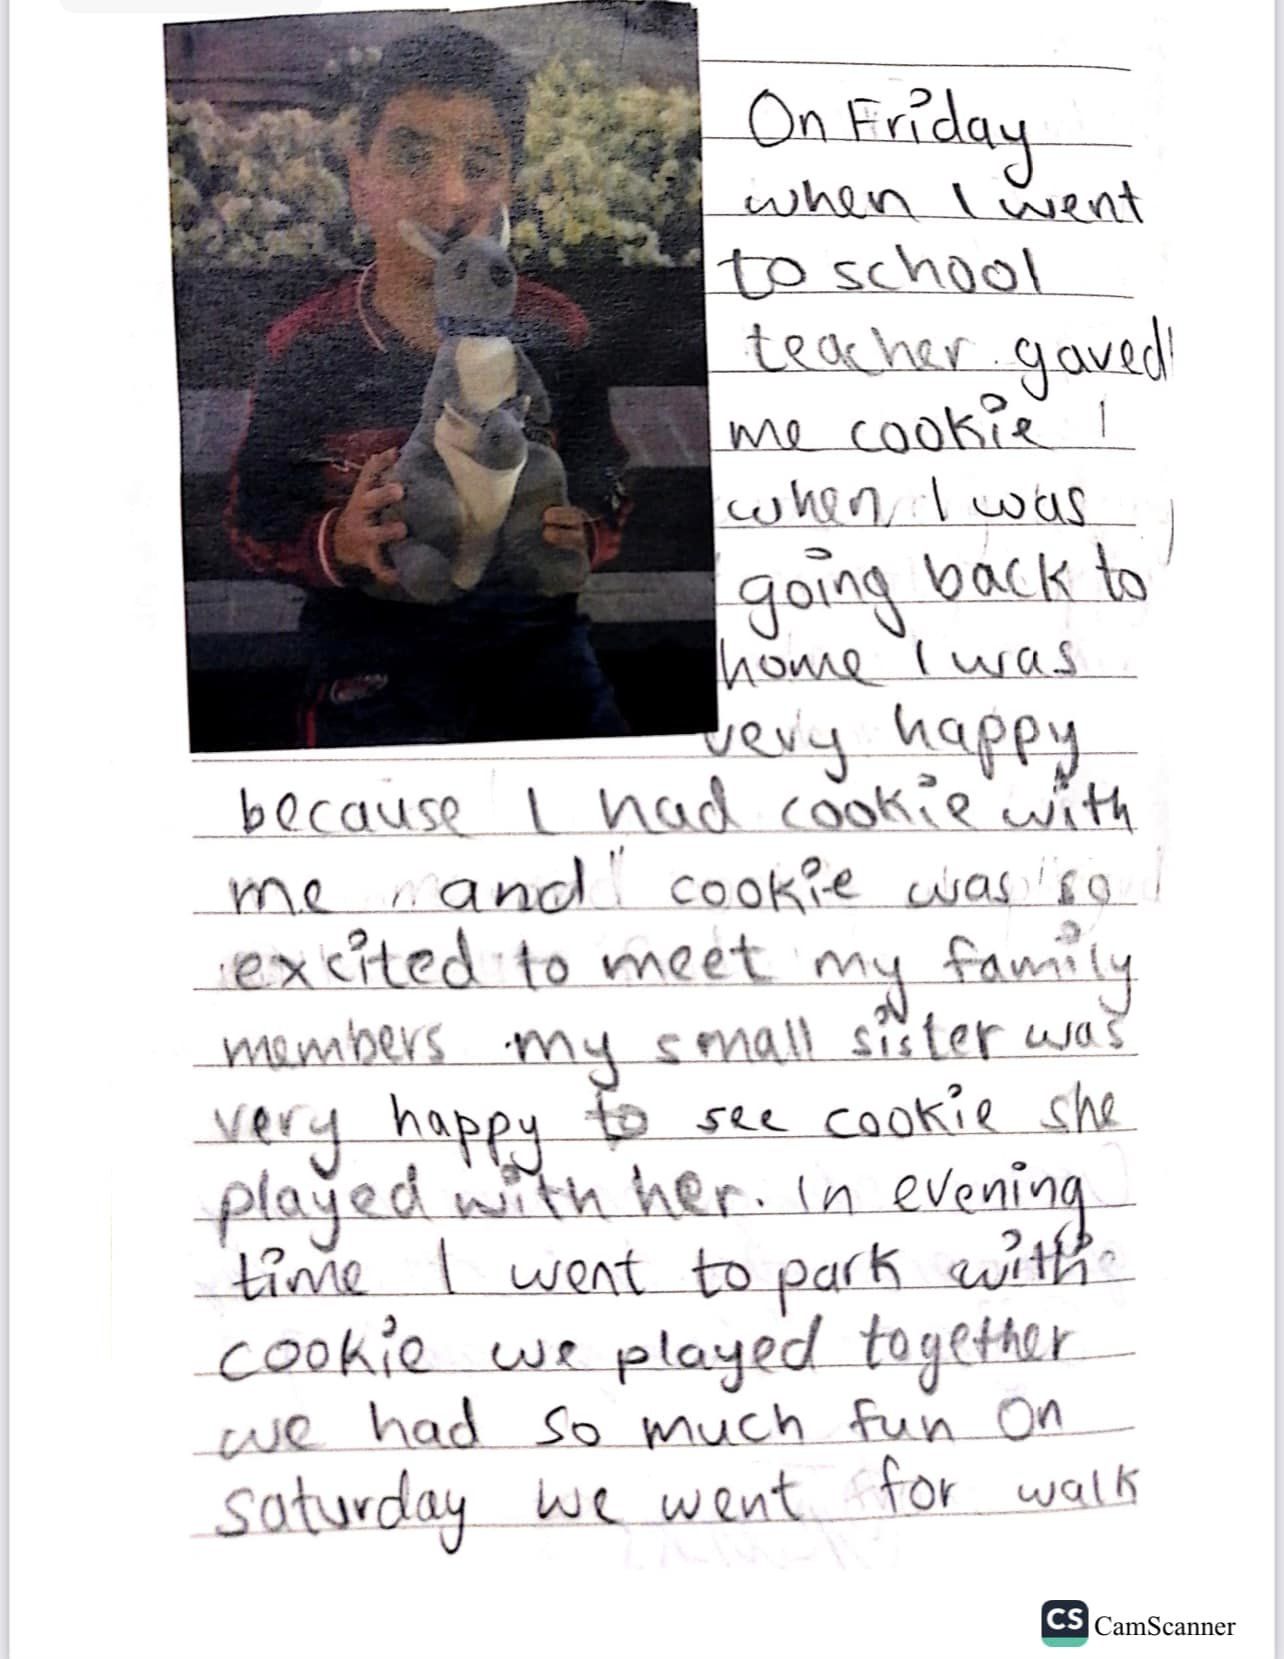 On Friday
when I went
to school
teacher gaved
me cookie I
when I was
going back to
home I was
very happy
because I had cookie with
me and cookie was so
excited to meet my family
members my small sister was
very happy to see cookie she
played with her. In evening
time I went to park with
cookie we played together
we had so much fun On
saturday we went for walk
CS CamScanner